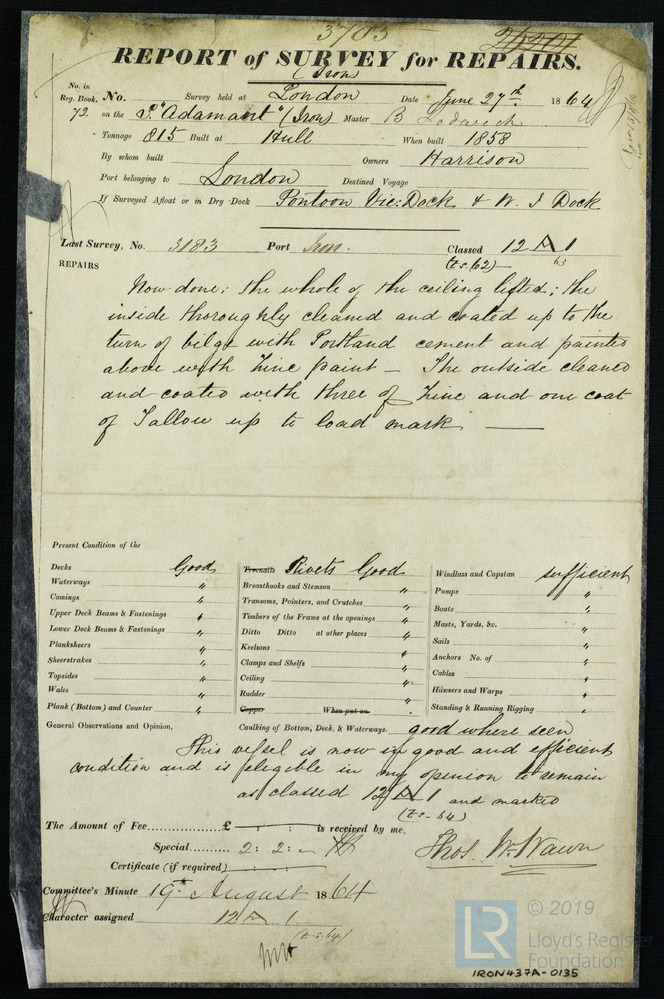 3783
25201
REPORT of SURVEY for REPAIRS.
(Iron)
No. in
Reg. Book.
72
No. Survey held at London Date June 27th 1864
on the S. "Adamant" (Iron) Master B
Tonnage 815 Built at Hull When built 1858
By whom built Owners Harrison
Port belonging to London Destined Voyage
If Surveyed Afloat or in Dry Dock Pontoon Vic: Dock & W. I Dock
Last Survey, No. 3183 Port Iron. Classed 12 A 1
(t.s. 62) 63
REPAIRS
Now done: the whole of the ceiling lifted; the
inside thoroughly cleaned and coated up to the
turn of bilge with Portland cement and painted
above with Zinc paint — The outside cleaned
and coated with three of Zinc and one coat
of Tallow up to load mark —
Present Condition of the
Decks Good Treenails Rivets Good Windlass and Capstan sufficient
Waterways " Breasthooks and Stemson " Pumps "
Comings " Transoms, Pointers, and Crutches " Boats "
Upper Deck Beams & Fastenings " Timbers of the Frame at the openings " Masts, Yards, &c. "
Lower Deck Beams & Fastenings " Ditto Ditto at other places " Sails "
Planksheers " Keelsons " Anchors No. of "
Sheerstrakes " Clamps and Shelfs " Cables "
Topsides " Ceiling " Hawsers and Warps "
Wales " Rudder " Standing & Running Rigging "
Plank (Bottom) and Counter " Copper When put on
General Observations and Opinion, Caulking of Bottom, Deck, & Waterways. good where seen
This vessel is now in good and efficient
condition and is eligible in my opinion to remain
as classed 12 A 1 and marked
(t.s. 64)
The Amount of Fee £ is received by me,
Special 2: 2: - Thos. W. Wawn
Certificate (if required)
Committee's Minute 19th August 1864
Character assigned 12 A 1
(t.s. 64)
LR
© 2019
Lloyd's Register
Foundation
IRON437A-0135